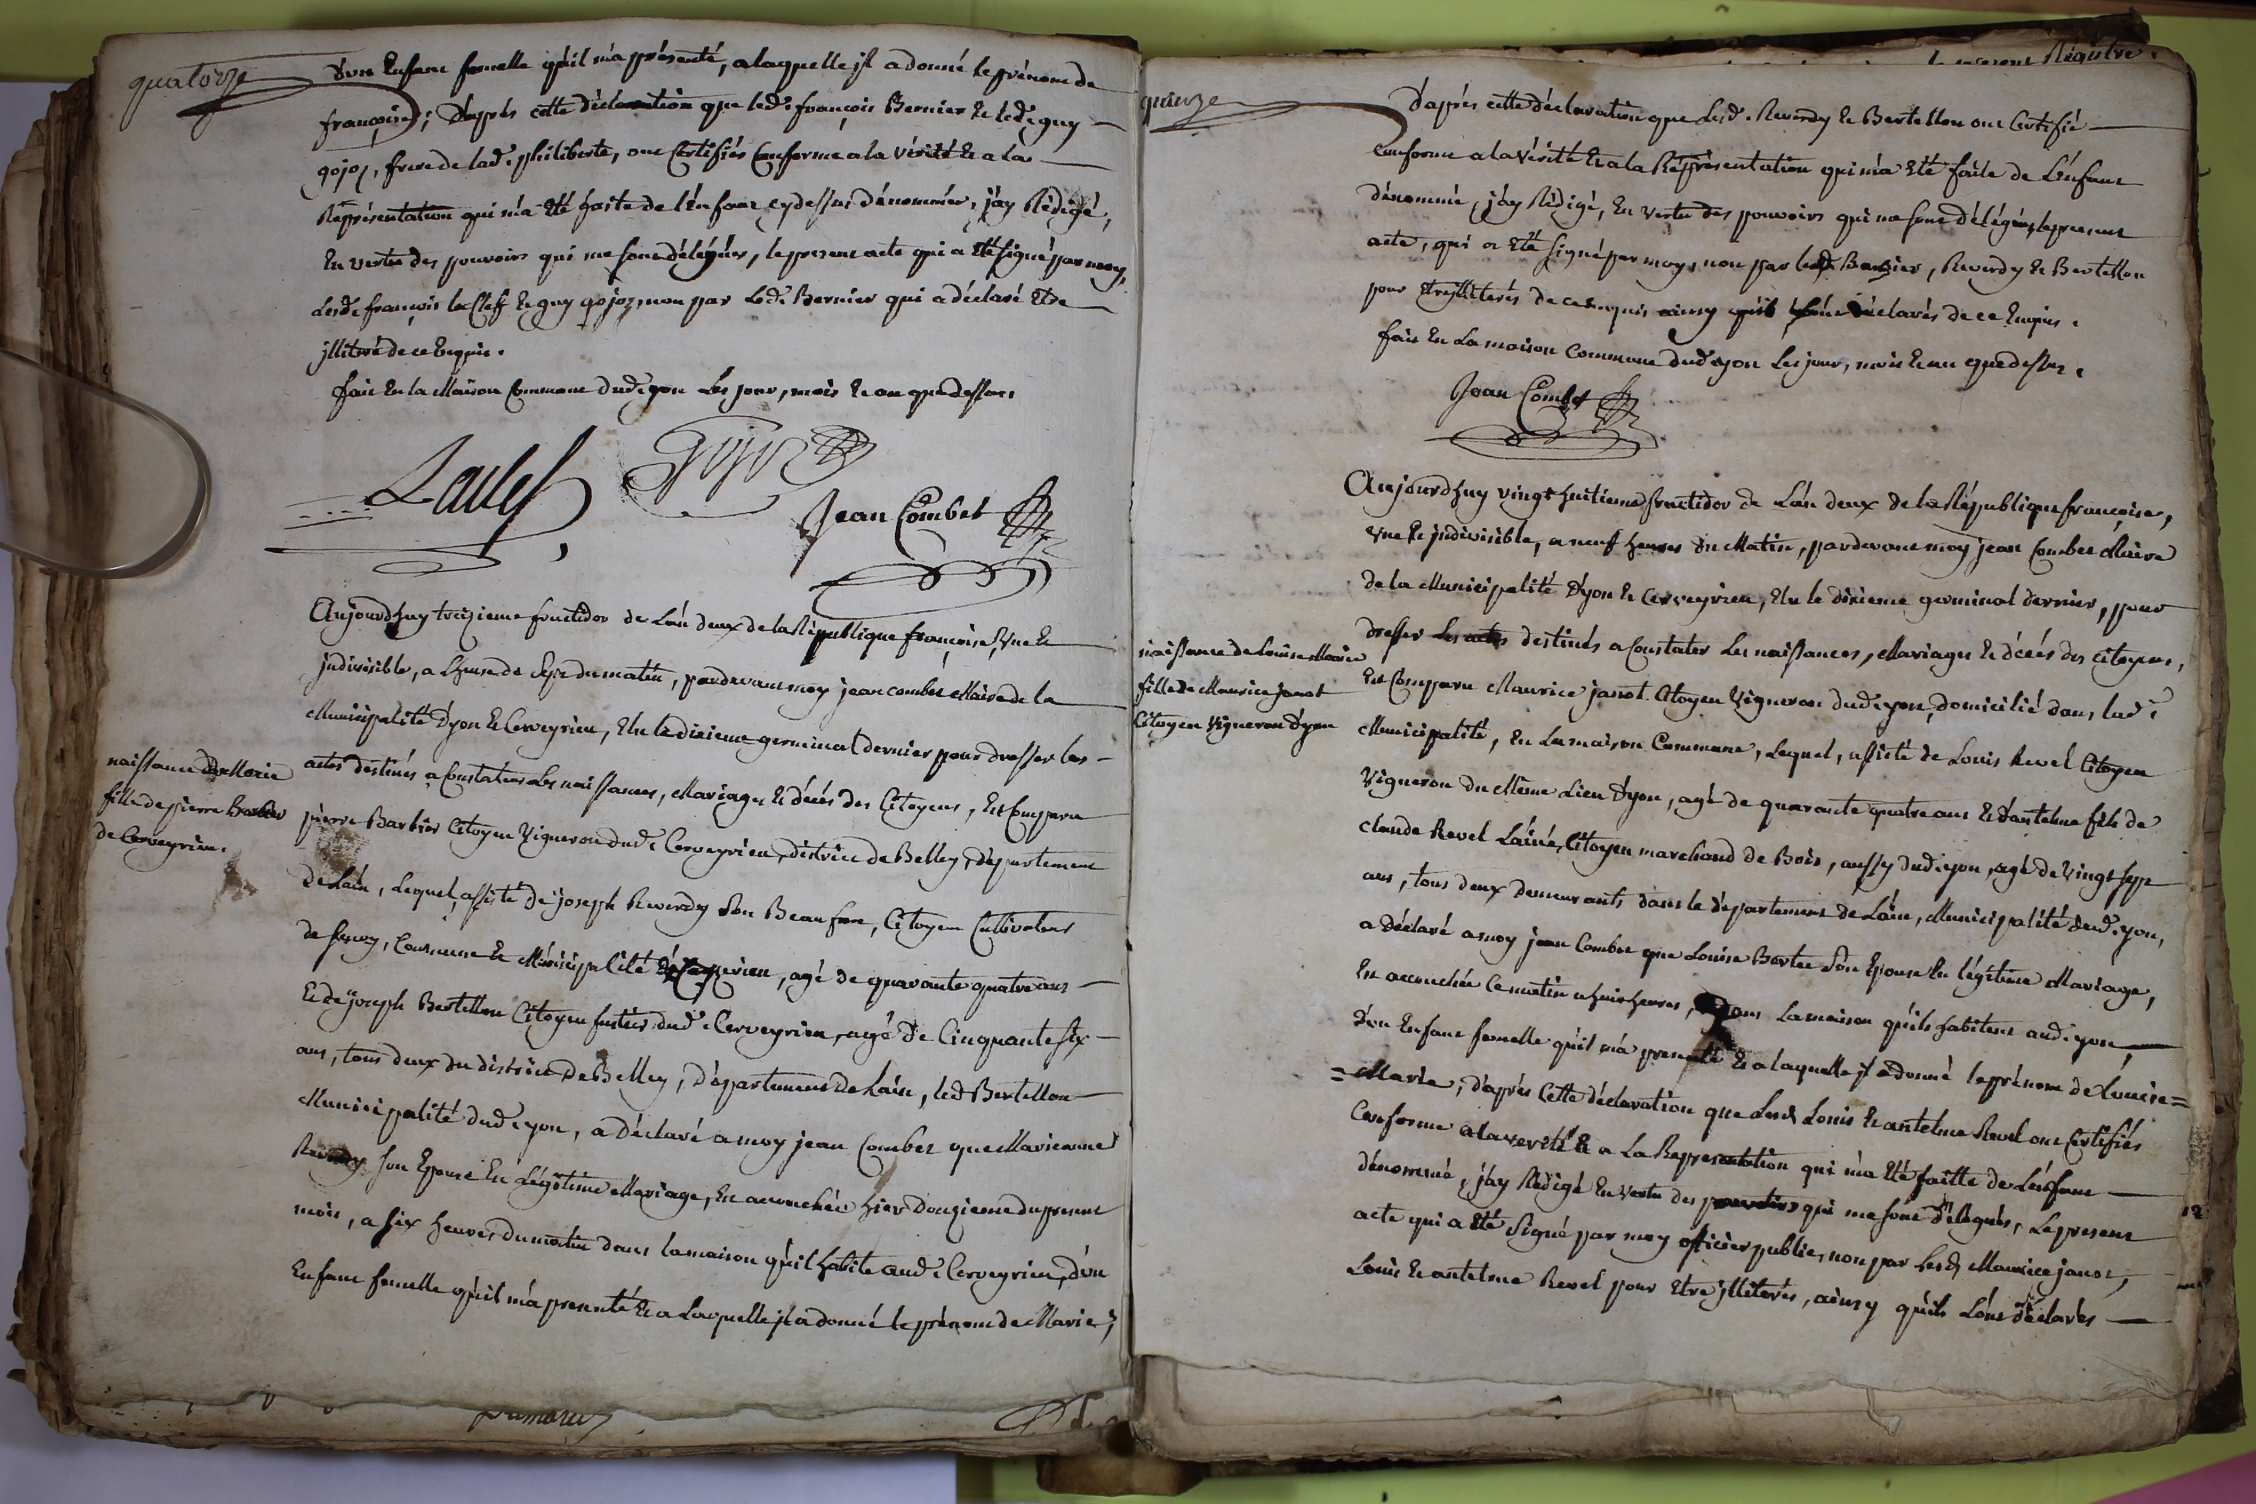 quatorze
d'un Enfant femelle qu'il m'a présenté, a laquelle jl a donné le prénom de
françoise; D'après cette déclaration que led. françois Bernier & led. guy
gojoz, frere de lad. philiberte, ont Certifiés Conforme a la vérité & a la
Représentation qui m'a Eté faite de l'enfant cy dessus dénommée, j'ay Rédigé,
En vertu des pouvoirs qui me sont délégués, le present acte qui a Eté signé par moy,
Lesd. françois la Cleff & guy gojoz, non par Led. Bernier qui a déclaré Etre
jllitéré de ce Enquis.
fait En la Maison Commune dud. yon Les jour, mois & an que dessus.
Laclef gojoz
Jean Combet
Aujourd'huy treizieme fructidor de L'an deux de la République françoise, Une &
jndivisible, a L'heure de Sept du matin, pardevant moy jean Combet Maire de la
Municipalité d'yon & Cerveyrieu, Elu le dixieme germinal dernier pour dresser les
actes destinés a Constater Les naissances, Mariages & décés des Citoyens, Est Comparu
naissance de Marie
fille de pierre Barbier
de Cerveyrieu.
pierre Barbier Citoyen Vigneron dud. Cerveyrieu, district de Belley, département
de L'ain, Lequel, assisté de joseph Reverdy Son Beau frere, Citoyen Cultivateur
de Commune & Municipalité agé de quarante quatre ans
& de joseph Bertellon Citoyen dud. Cerveyrieu, agé de Cinquante Six
ans, tous deux du district de Belley, département de L'ain, led. Bertellon
Municipalité dud. yon, a Déclaré a moy jean Combet que Marieanne
Reverdy son Epouse En Légitime Mariage, Est accouchée hier douzieme du present
mois, a six heures du matin dans la maison qu'il habite aud. Cerveyrieu, d'un
Enfant femelle qu'il m'a presenté & a Laquelle jl a donné le prénom de Marie;
Registre.
quinze
D'après cette déclaration que Lesd. Reverdy & Bertellon ont Certifié
Conforme a la Vérité & a la Représentation qui m'a Eté faite de L'enfant
dénommé, j'ay Rédigé, En vertu des pouvoirs qui me sont délégués, le present
acte, qui a Eté signé par moy, non par lesd. Barbier, Reverdy & Bertellon
pour Etre jlliterés de ce Enquis ainsy qu'ils l'ont déclarés de ce Enquis.
fait En La maison Commune dud. yon Les jour, mois & an que dessus.
Jean Combet
Aujourd'huy vingt huitieme fructidor de L'an deux de la République françoise,
Une & jndivisible, a neuf heures du Matin, pardevant moy jean Combet Maire
de la Municipalité d'yon & Cerveyrieu, Elu le dixieme germinal dernier, pour
dresser Les actes destinés a Constater Les naissances, Mariages & décés des Citoyens,
naissance de Louise Marie
fille de Maurice janot
Citoyen Vigneron d'yon
Est Comparu Maurice janot Citoyen Vigneron dud. yon, domicilié dans lad.
Municipalité, En La maison Commune, Lequel, assisté de Louis Revel Citoyen
Vigneron du Même Lieu d'yon, agé de quarante quatre ans & d'antelme fils de
claude Revel L'ainé, Citoyen marchand de Bois, aussy dud. yon, agé de Vingt sept
ans, tous deux demeurants dans le département de L'ain, Municipalité dud. yon,
a Déclaré a moy jean Combet que Louise Son Epouse En légitime Mariage,
Est accouchée Ce matin a huit heures, Dans La maison qu'ils habitent aud. yon,
d'un Enfant femelle qu'il m'a presenté & a laquelle jl a donné le prénom de Louise=
=Marie; d'après Cette déclaration que Lesd. Louis & antelme Revel ont Certifiés
Conforme a la verité & a La Representation qui m'a Eté faitte de L'enfant
dénommé, j'ay Rédigé En vertu des pouvoirs qui me sont délégués, Le present
acte qui a Eté signé par moy officier public, non par Lesd. Maurice janot,
Louis & antelme Revel pour Etre jlliterés, ainsy qu'ils L'ont déclarés